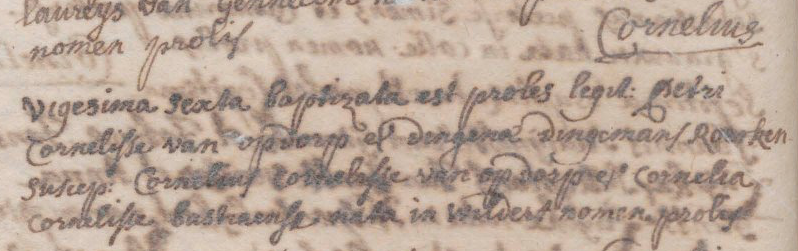 laureys van gennecom
nomen prolis
Cornelius
vigesima sexta baptizata est proles legit: petri
cornelisse van opdorp et dingena dingemans Roerken
suscep: Cornelius cornelisse van opdorp et cornelia
cornelisse nata in wildert nomen prolis